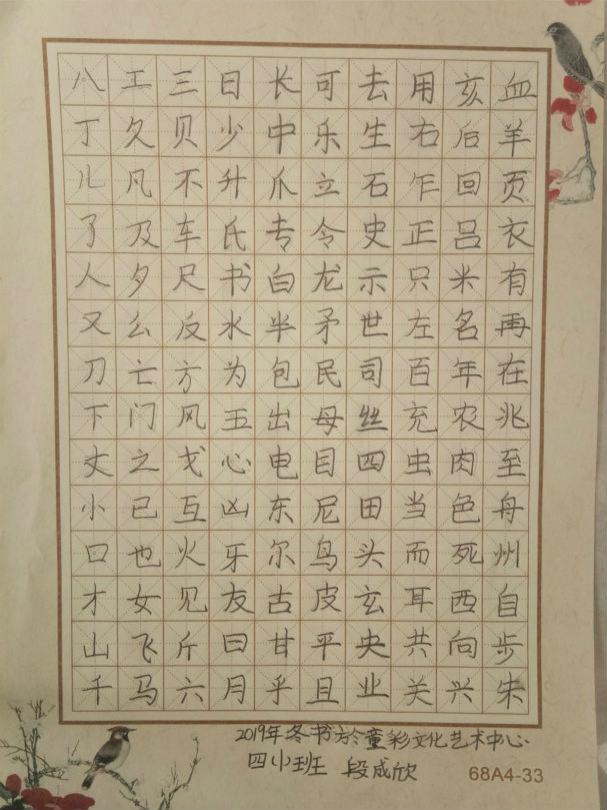 八工三日长可去用亥血
丁久贝少中乐生右后羊
儿凡不升爪立石乍回页
了及车氏专令史正吕衣
人夕尺书白龙示只米有
又么反水半矛世左名再
刀亡方为包民司百年在
下门风五出母丝充农兆
丈之戈心电目四虫肉至
小已互凶东尼田当色舟
口也火牙尔鸟头而死州
才女见友古皮玄耳西自
山飞斤曰甘平央共向步
千马六月乎且业关兴朱
2019年冬书于童彩文化艺术中心
四小班 段成欣
68A4-33